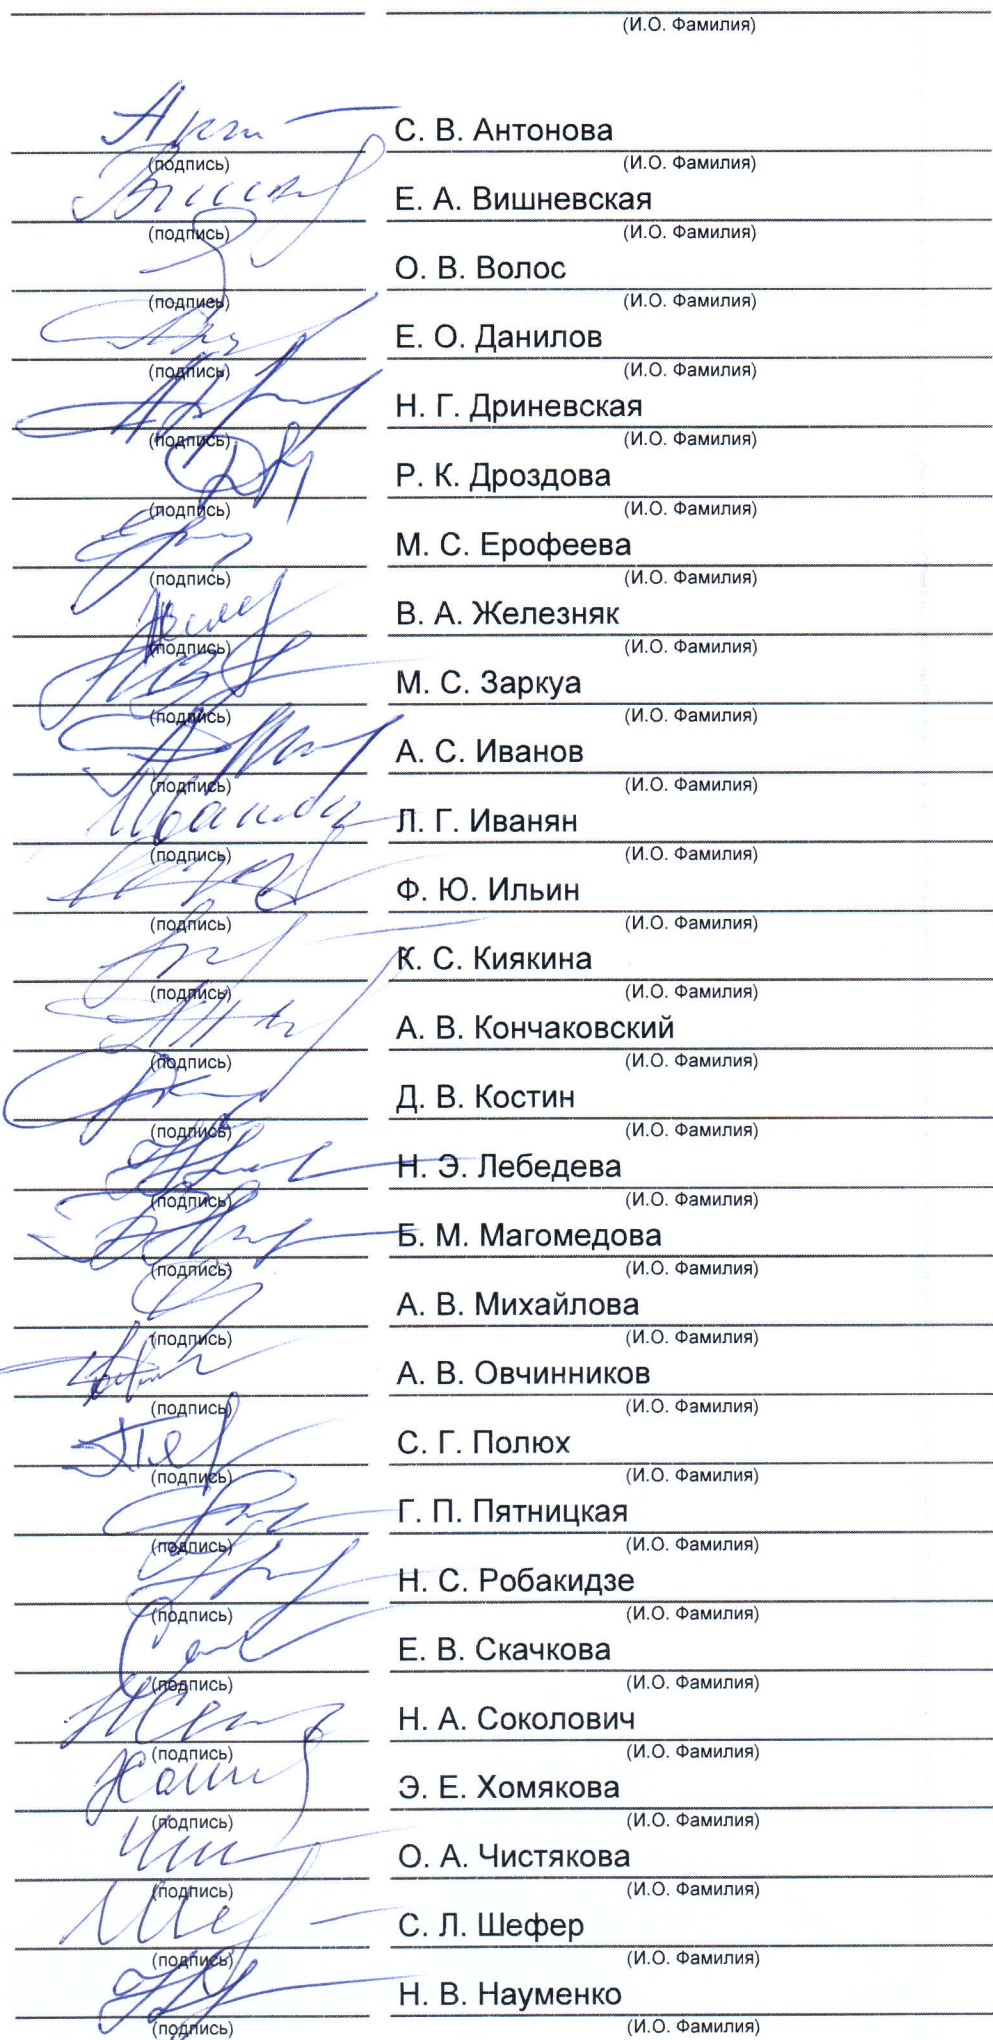 (И.О. Фамилия)
С. В. Антонова
(подпись) (И.О. Фамилия)
Е. А. Вишневская
(подпись) (И.О. Фамилия)
О. В. Волос
(подпись) (И.О. Фамилия)
Е. О. Данилов
(подпись) (И.О. Фамилия)
Н. Г. Дриневская
(подпись) (И.О. Фамилия)
Р. К. Дроздова
(подпись) (И.О. Фамилия)
М. С. Ерофеева
(подпись) (И.О. Фамилия)
В. А. Железняк
(подпись) (И.О. Фамилия)
М. С. Заркуа
(подпись) (И.О. Фамилия)
А. С. Иванов
(подпись) (И.О. Фамилия)
Л. Г. Иванян
(подпись) (И.О. Фамилия)
Ф. Ю. Ильин
(подпись) (И.О. Фамилия)
К. С. Киякина
(подпись) (И.О. Фамилия)
А. В. Кончаковский
(подпись) (И.О. Фамилия)
Д. В. Костин
(подпись) (И.О. Фамилия)
Н. Э. Лебедева
(подпись) (И.О. Фамилия)
Б. М. Магомедова
(подпись) (И.О. Фамилия)
А. В. Михайлова
(подпись) (И.О. Фамилия)
А. В. Овчинников
(подпись) (И.О. Фамилия)
С. Г. Полюх
(подпись) (И.О. Фамилия)
Г. П. Пятницкая
(подпись) (И.О. Фамилия)
Н. С. Робакидзе
(подпись) (И.О. Фамилия)
Е. В. Скачкова
(подпись) (И.О. Фамилия)
Н. А. Соколович
(подпись) (И.О. Фамилия)
Э. Е. Хомякова
(подпись) (И.О. Фамилия)
О. А. Чистякова
(подпись) (И.О. Фамилия)
С. Л. Шефер
(подпись) (И.О. Фамилия)
Н. В. Науменко
(подпись) (И.О. Фамилия)